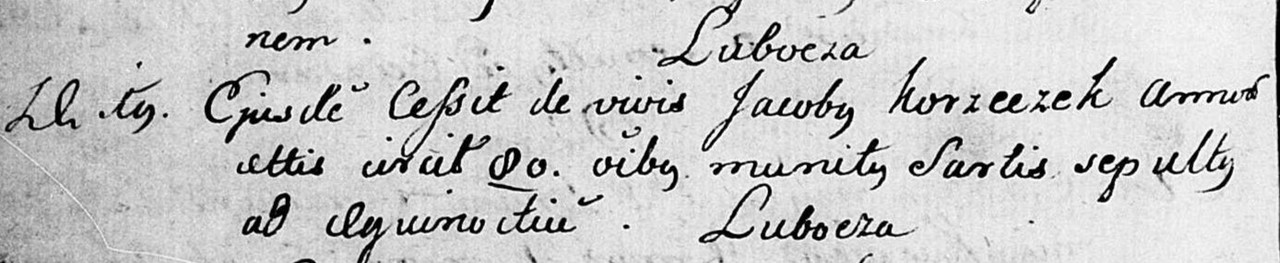 nem. Lubocza
Ejusdē Cessit de vivis Jacoby Korzeczek annos
ettis circit 80. oiby munity Sartis sepulty
ad Equinoctiū. Lubocza